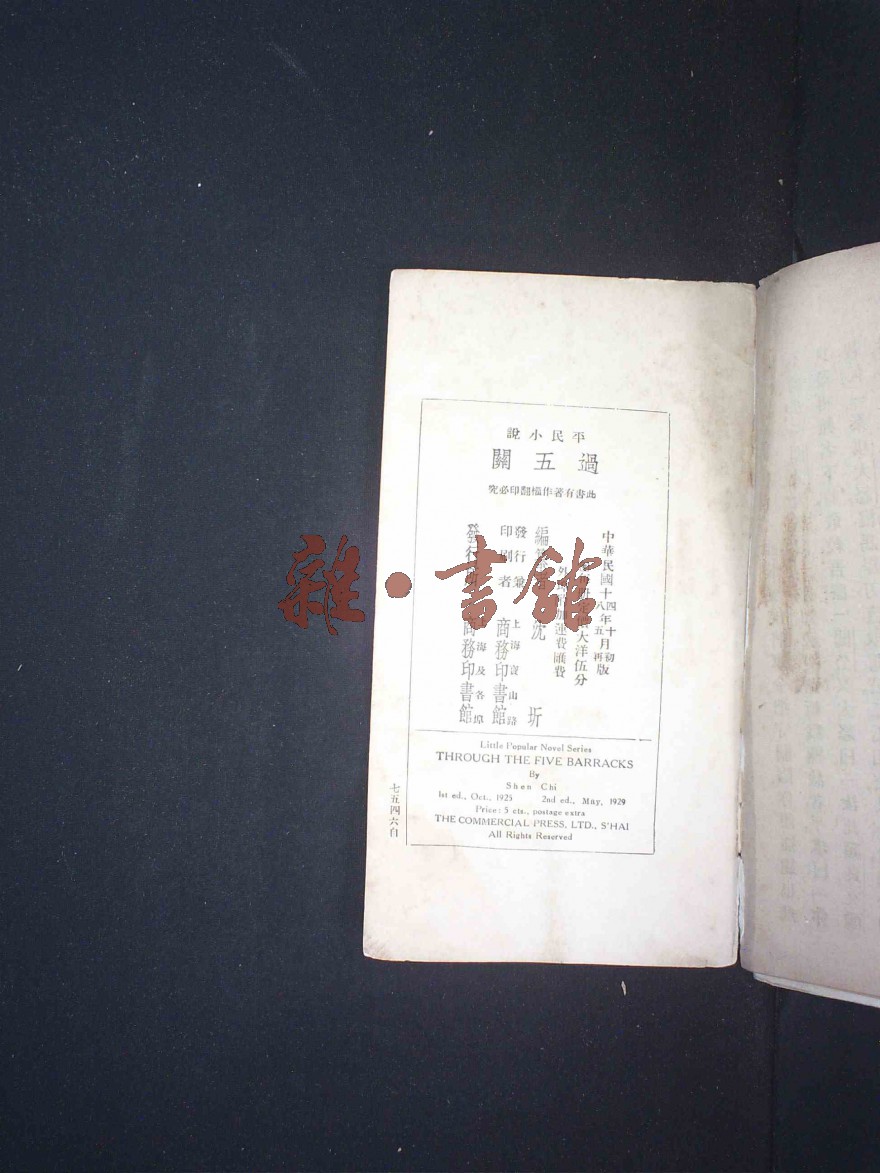 平民小說
過五關
此書有著作權翻印必究
中華民國十四年十月初版
十八年五月再版
大洋伍分
運費匯費
編
沈
圻
發行兼
印刷者
上海寶山路
商務印書館
發行
海及各埠
商務印書館
Little Popular Novel Series
THROUGH THE FIVE BARRACKS
By
Shen Chi
1st ed., Oct., 1925 2nd ed., May, 1929
Price: 5 cts., postage extra
THE COMMERCIAL PRESS, LTD., S'HAI
All Rights Reserved
七五四六自
雜·書館